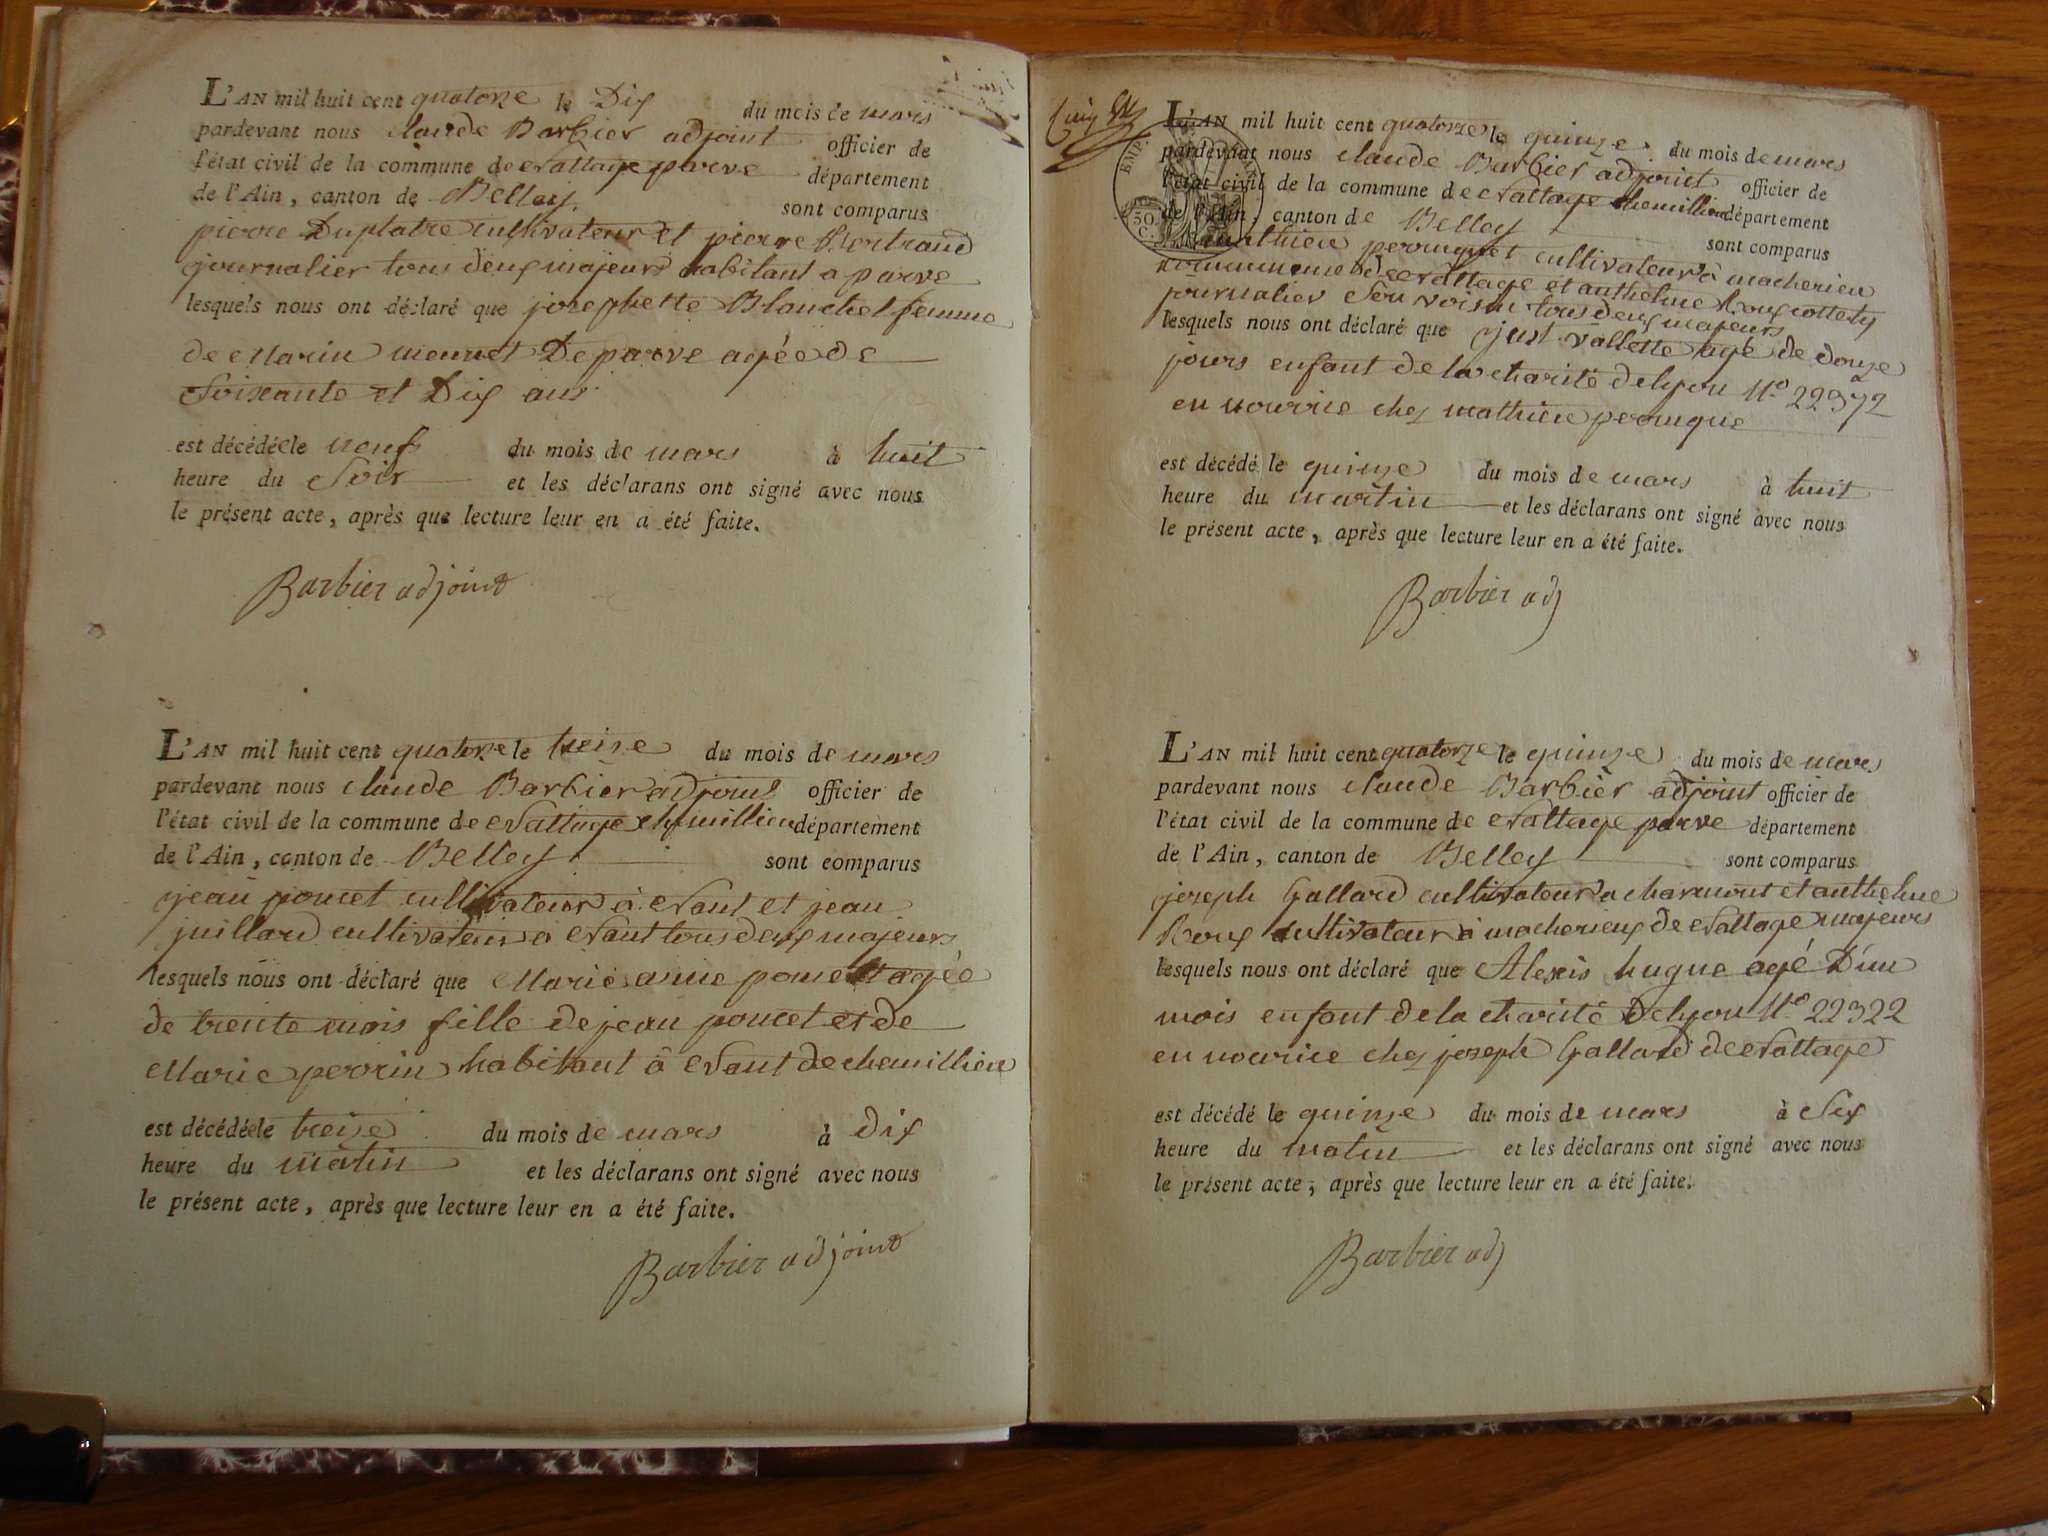 L'AN mil huit cent quatorze le Dix du mois de mars
pardevant nous claude Barbier adjoint officier de
l'état civil de la commune de Nattage parve département
de l'Ain, canton de Belley sont comparus
pierre Duplatre cultivateur et pierre Bertrand
journalier tous deux majeurs habitant a parve
lesquels nous ont déclaré que josephette Blanchet femme
de Marin monnet De parve agée de
Soixante et Dix ans
est décédée le neuf du mois de mars à huit
heure du Soir et les déclarans ont signé avec nous
le présent acte, après que lecture leur en a été faite.
Barbier adjoint
L'AN mil huit cent quatorze le treize du mois de mars
pardevant nous claude Barbier adjoint officier de
l'état civil de la commune de Nattage chemillieu département
de l'Ain, canton de Belley sont comparus
jean poncet cultivateur à Nant et jean
juillard cultivateur à Nant tous deux majeurs
lesquels nous ont déclaré que Marie anne poncet agée
de trente mois fille de jean poncet et de
Marie perrin habitant à Nant de chemillieu
est décédée le treize du mois de mars à dix
heure du matin et les déclarans ont signé avec nous
le présent acte, après que lecture leur en a été faite.
Barbier adjoint
EMP.
50.
C.
L'AN mil huit cent quatorze le quinze du mois de mars
pardevant nous claude Barbier adjoint officier de
l'état civil de la commune de Nattage chemillieu département
de l'Ain, canton de Belley sont comparus
mathieu perruquet cultivateur à macherieu
commune de Nattage et anthelme
journalier Son voisin tous deux majeurs
lesquels nous ont déclaré que just vallette agé de douze
jours enfant de la charité de lyon No 22372
en nourrice chez mathieu perruque
est décédé le quinze du mois de mars à huit
heure du martin et les déclarans ont signé avec nous
le présent acte, après que lecture leur en a été faite.
Barbier adj
L'AN mil huit cent quatorze le quinze du mois de mars
pardevant nous claude Barbier adjoint officier de
l'état civil de la commune de Nattage parve département
de l'Ain, canton de Belley sont comparus
joseph Gallard cultivateur a charmont et anthelme
Roux cultivateur à macherieux de Nattage majeurs
lesquels nous ont déclaré que Alexis hugue agé D'un
mois enfant de la charité De lyon No 22322
en nourrice chez joseph Gallard de Nattage
est décédé le quinze du mois de mars à Six
heure du matin et les déclarans ont signé avec nous
le présent acte, après que lecture leur en a été faite.
Barbier adj